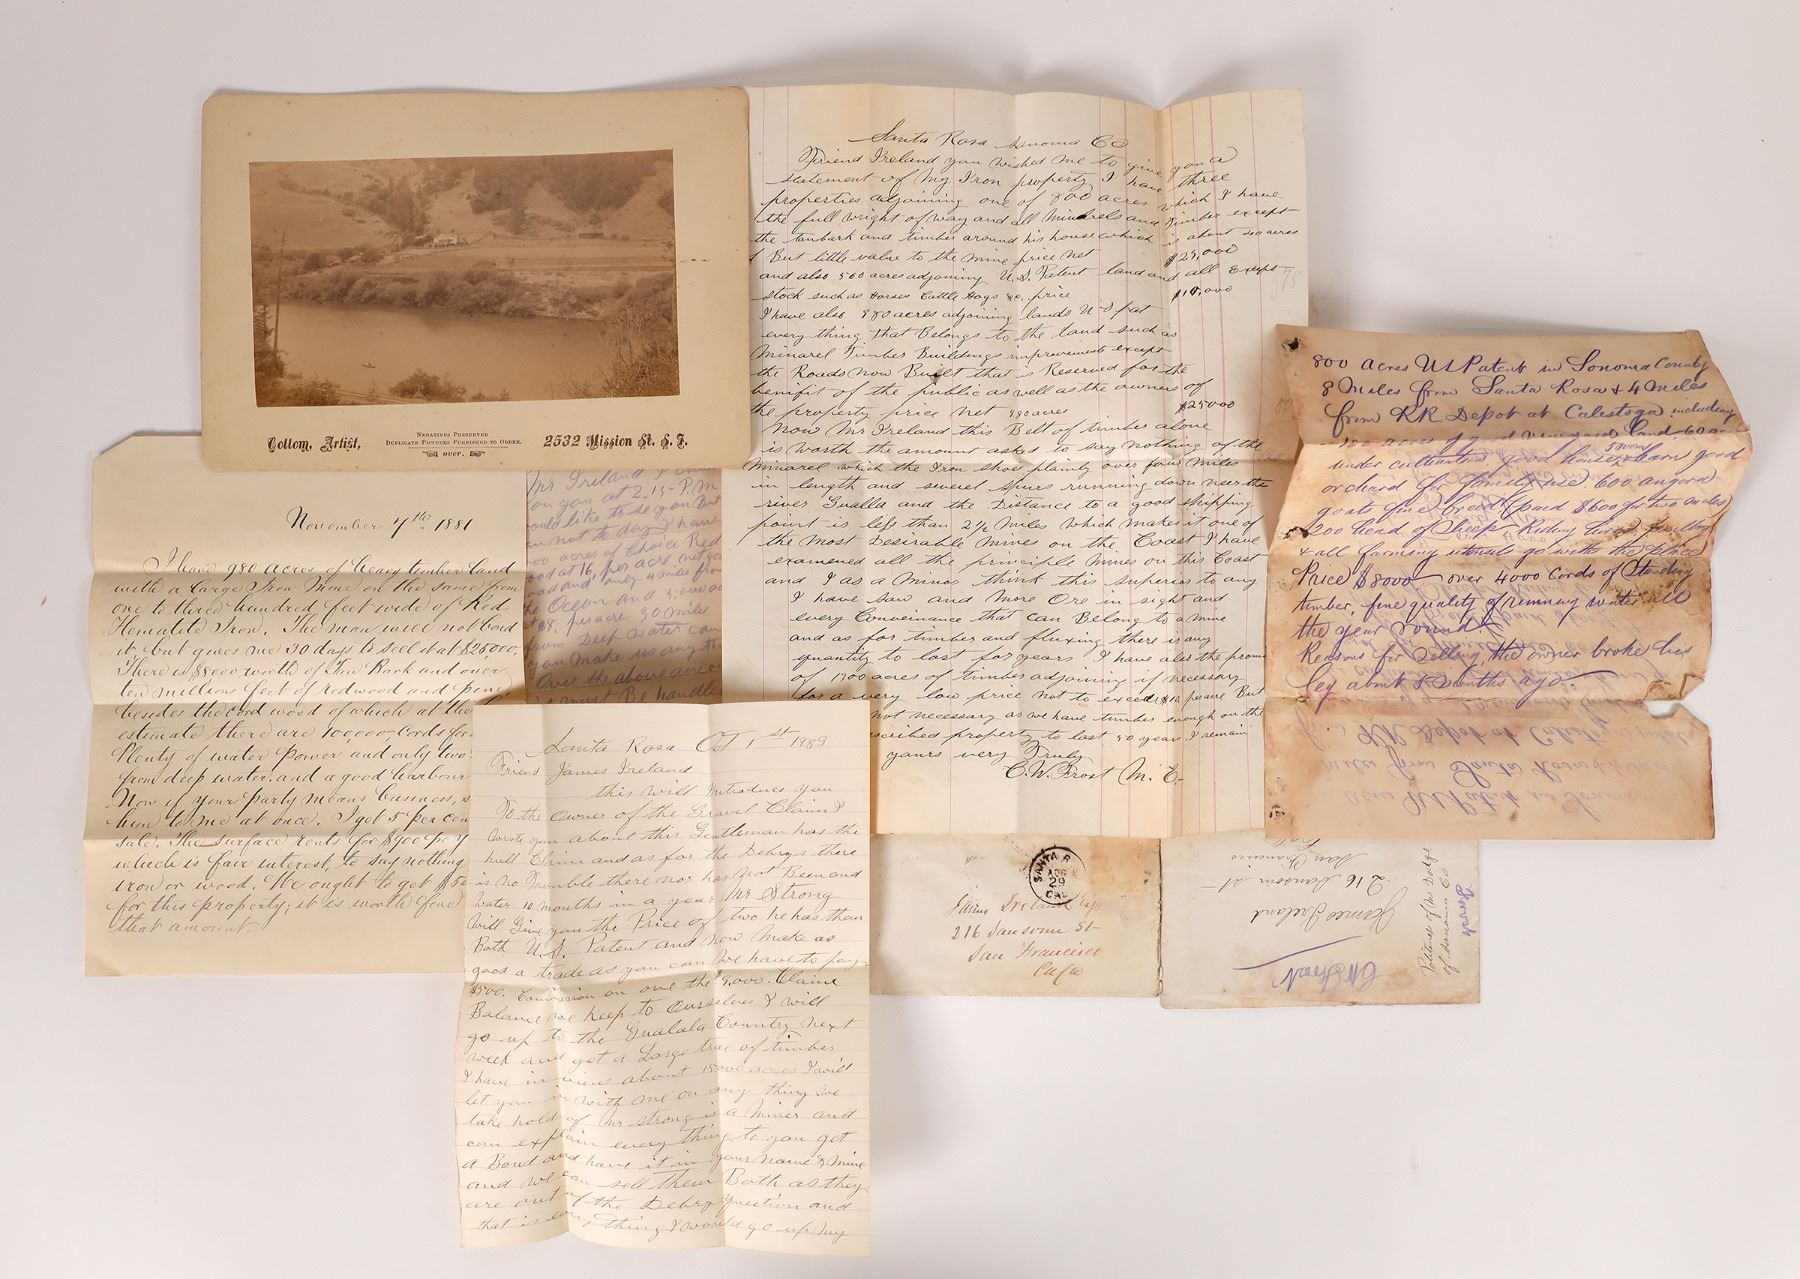 Cottom, Artist,
NEGATIVES PRESERVED
DUPLICATE PICTURES FURNISHED TO ORDER.
over.
2532 Mission St. S. F.
Santa Rosa Sonoma CO
Friend Ireland you wished me to give you a
statement of My Iron property I have three
properties adjoining one of 800 acres which I have
the full wright of way and all Minerels and Timber except
the tanbark and timber around his house which is about 200 acres
But little value to the mine price net $25,000
and also 560 acres adjoining U.S. Patent land and all Except
stock such as Horses Cattle Hogs &c. price $10,000
I have also 980 acres adjoining lands U-S pat
every thing that Belongs to the land such as
Minarel Timber Buildings improvements except
the Roads now Built that is Reserved for the
benifit of the public as well as the owners of
the property price Net 980 acres $25000
Now Mr Ireland this Belt of timber alone
is worth the amount asked to say nothing of the
Minarel which the Iron shoes plainly over four Miles
in length and severel spurs running down neer the
river Gualla and the Distance to a good shipping
point is less than 2 1/2 Miles which makes it one of
the Most Desirable Mines on the Coast I have
examened all the principle Mines on this Coast
and I as a Minor think this superior to any
I have saw and More Ore in sight and
every Conveinance that can Belong to a mine
and as for timber and fluxing there is any
quantity to last for years I have also the
of 1700 acres of timber adjoining if necessary
for a very low price not to exceed $10 per acre But
not necessary as we have timber enough on the
scribed property to last 50 years I remain
yours very Truly
C. W. Frost M. E-
800 acres US Patent in Sonoma County
8 Miles from Santa Rosa & 4 Miles
from RR Depot at Calestoga including
200 acres of good vineyard land. 60
under cultivation good house 5 rooms barn good
orchard for family use 600 angora
goats fine breed (paid $600 for two males
200 head of Sheep
& all farming utensils go with the place
Price $8000 over 4000 Cords of Standing
timber, fine quality of running water all
the year round.
Reasons for Selling, the owner broke his
leg about 8 months ago.
November 7th 1881
I have 980 acres of heavy timber land
with a large Iron Mine on the same from
one to three hundred feet wide of Red
Hematite Iron. The man will not bond
it but gives me 30 days to sell it at $25000,
There is $8000 worth of Tan Bark and over
ten millions feet of redwood and pine,
besides the cord wood of which at the
estimate there are 100,000, cords for
Plenty of water power and only two
from deep water and a good harbour
Now if your party means business, s
him to me at once. I get 5 per cen
sale. The surface rents for $900 pr y
which is fair interest, to say nothing
iron or wood. We ought to get $50
for this property; it is worth five
that amount.
Mr Ireland I
on you at 2.15- P.M
ould like to se you But
not to day I have
acres of Choice Red
ood at 16, per acre,
and only 4 miles from
the Ocean and
at $8. per acre 30 Miles
from Deep water can
you Make us any
Over the above
it must Be handle
Santa Rosa Oct 1st 1883
Friend James Ireland
this will introduce you
To the owner of the Gravel Claim I
wrote you about this Gentleman has the
hull Claim and as for the Debrys there
is no Trouble there nor has Not Been and
Water 10 months in a year Mr Strong
will Give you the Price of two he has them
Both U. S. Patent and now Make as
good a trade as you can We have to pay
$500. Comission on one the $9,000. Claim
Balance we keep to Ourselves I will
go up to the Gualala Country next
week and get a Large trac of timber
I have in view about 15000 acres I will
let you in with me on any thing we
take hold of Mr Strong is a Miner and
can explain every thing to you get
a Bond and have it in your name & Mine
and we can sell them Both as they
are out of the Debry Question and
that is every thing I would go up My
SANTA R
29
CAL
James Ireland Esq
216 Sansome St-
San Francisco
Cala
James Ireland
216 Sansom St-
San Francisco
C W Frost
of Sonoma Co
Frost